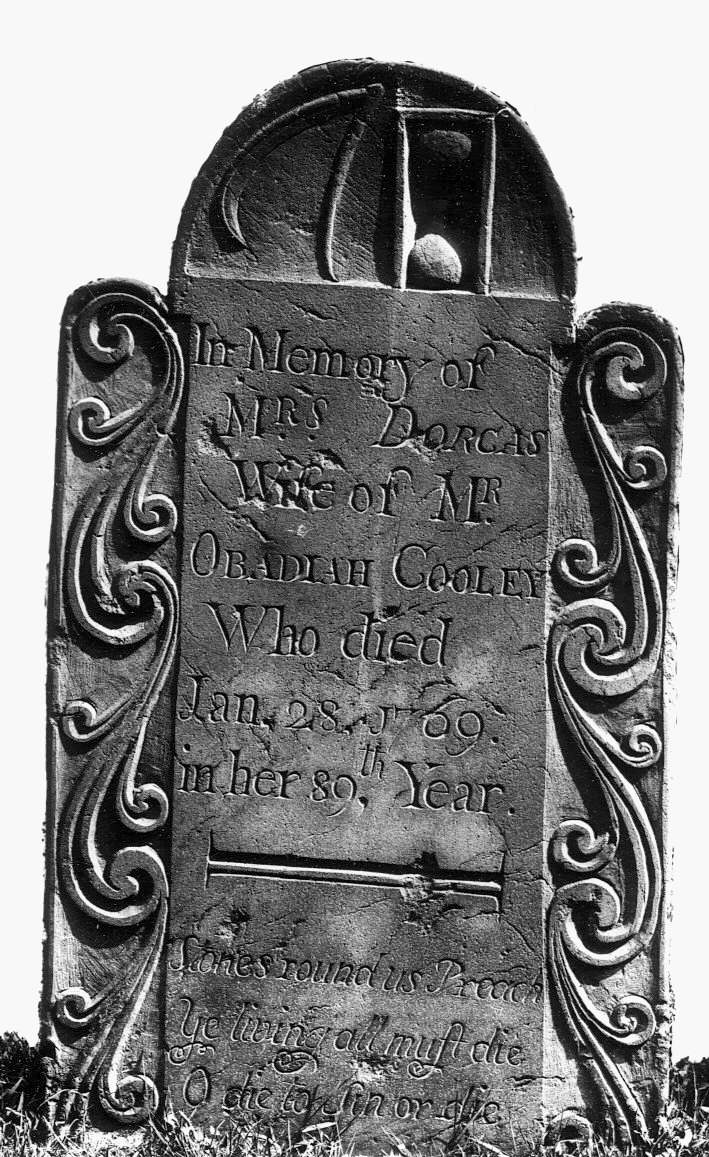 In Memory of
Mrs Dorcas
Wife of Mr.
Obadiah Cooley
Who died
Jan. 28. 1769.
in her 89,th Year.
Stones round us Preach
Ye living all muſt die
O die to Sin or die